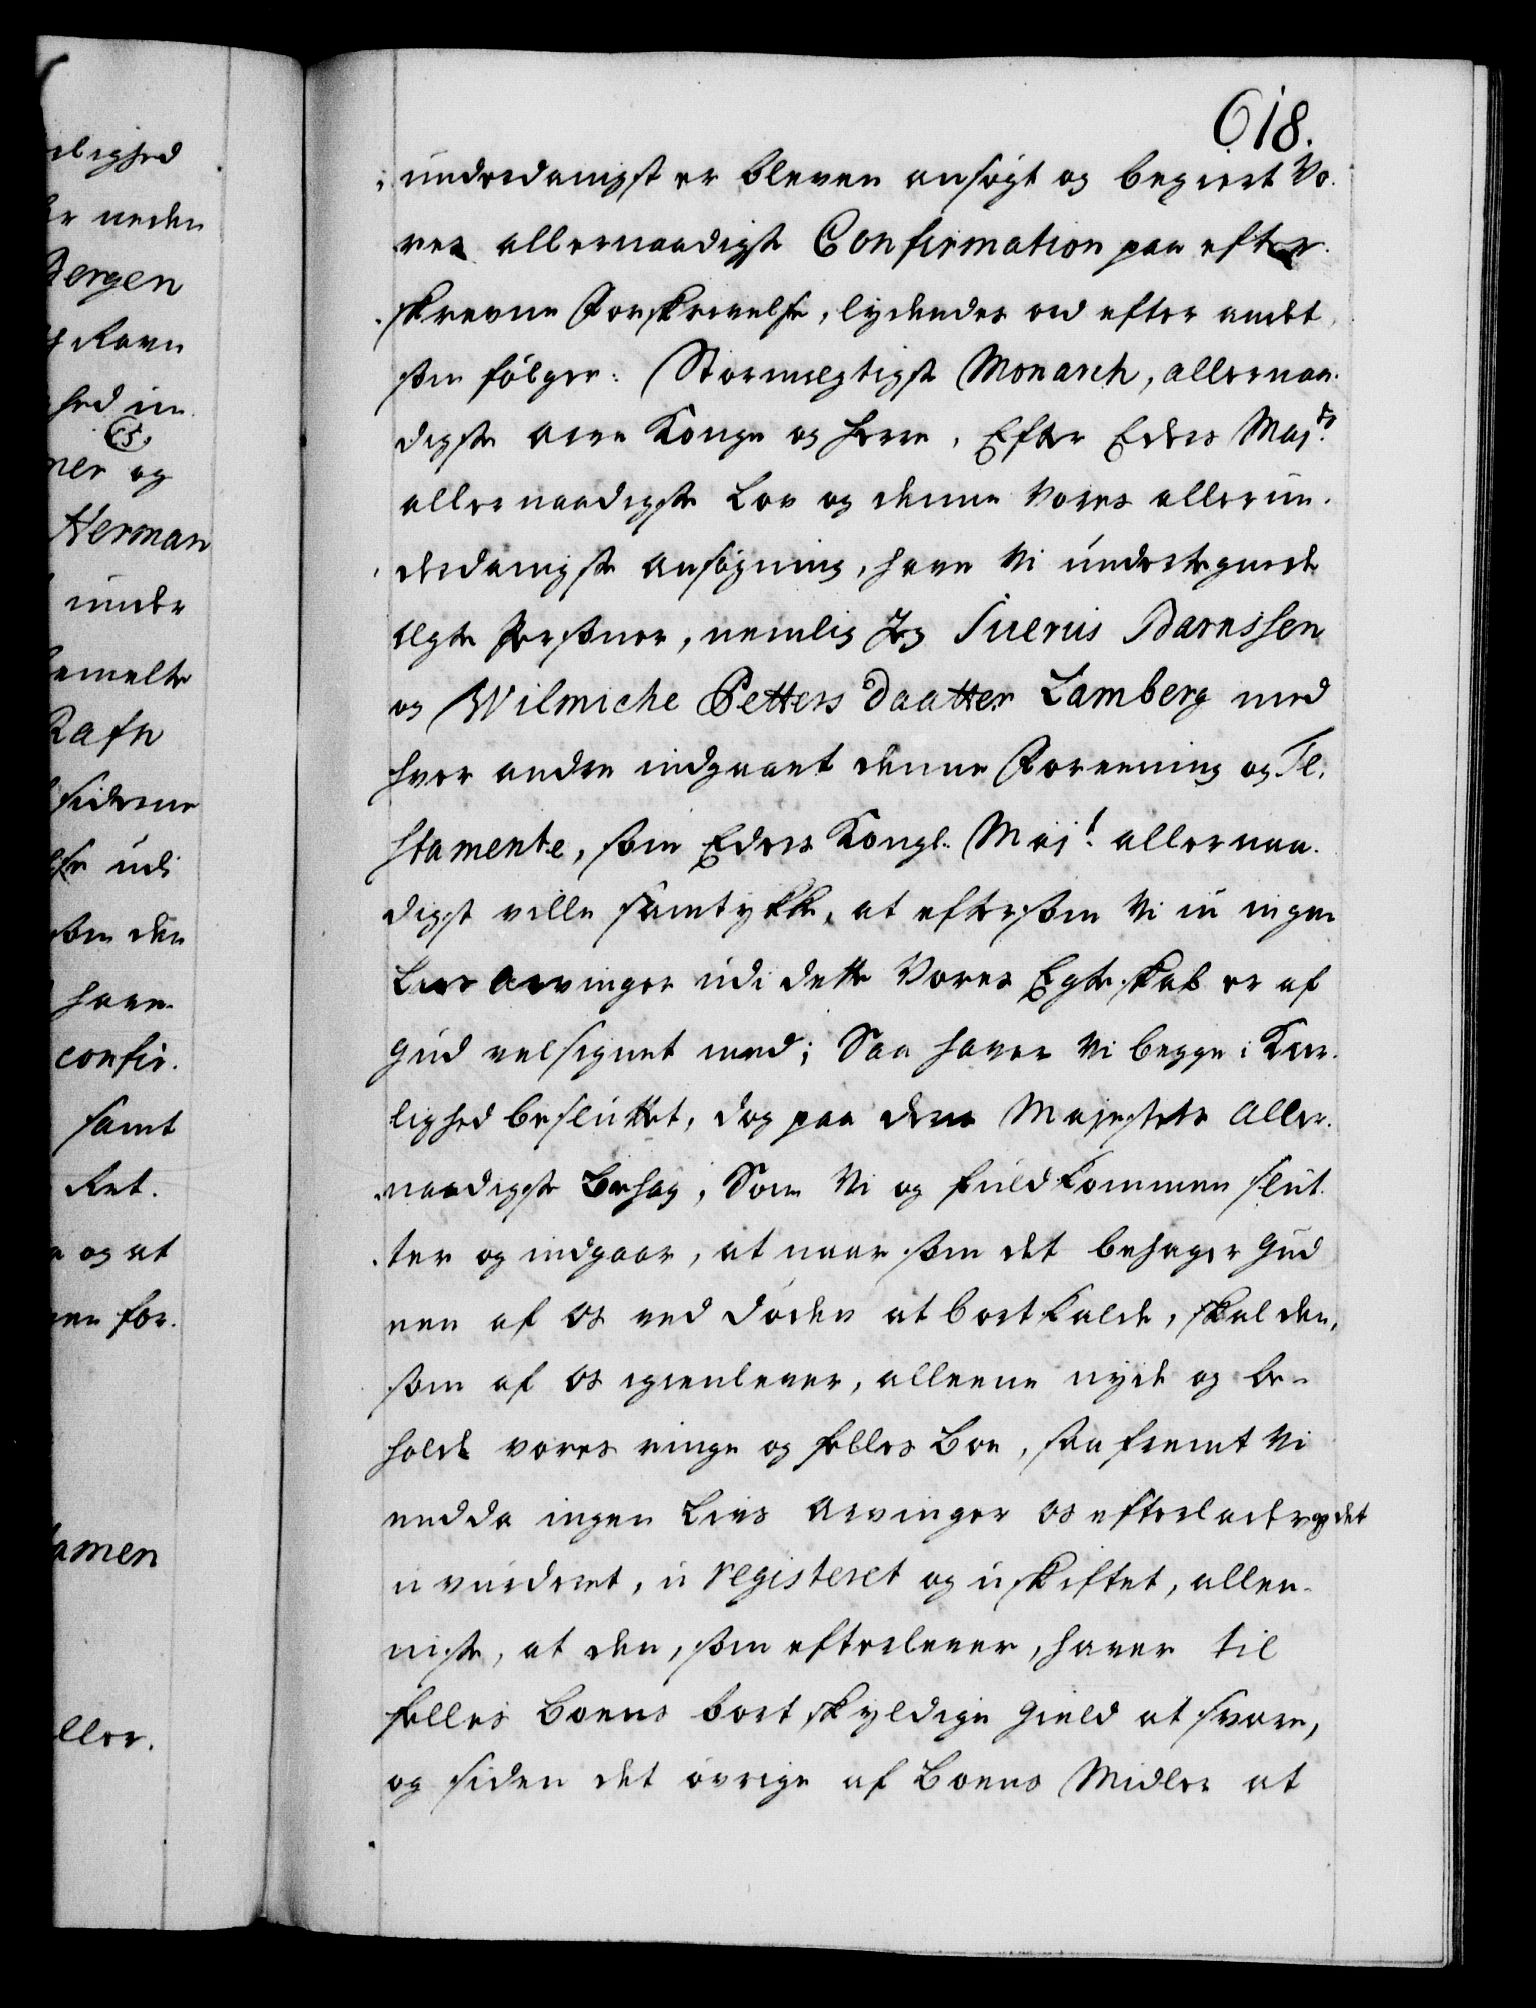 618.
underdanigst er bleven ansøgt og begiert Vo¬
res allernaadigste Confirmation paa efter¬
skrevne Forskrivelse, lydendes ord efter andet
som følger: Stormegtigste Monarch, allernaa¬
digste Arve Konge og Herre, Efter Eders Majts.
allernaadigste Lov og denne Vores allerun¬
derdanigste Ansøgning, have Vi undertegnede
Egte Personer, nemlig Jeg Siverus Barnssen
og Wilmiche Petters Daatter Lamberg med
hver andre indgaaet denne Foreening og Te¬
stamente, som Eders Kongl. Majt. allernaa¬
digst ville samtykke, at eftersom Vi u ingen
Livs Arvinger udi dette Vores Egteskab er af
Gud velsignet med; Saa haver Vi begge i Kier¬
lighed besluttet, dog paa deres Majestets Aller¬
naadigste Behag, Som Vi og fuldkommen slut¬
ter og indgaar, at naar som det behager Gud
een af os ved døden at bortkalde, skal den,
som af os igienlever, alleene nyde og be¬
holde vores ringe og felles Boe, saafremt Vi
endda ingen Livs Arvinger os efterlader og det
u-vurderet, u-registeret og u-skiftet, allee¬
niste, at den, som efterlever, haver til
felles Boens bortskyldige Gield at svare,
og siden det øvrige af Boens Midler at
Bergen
Ravn
og
Herman
under
Rafn
udi
som den
have
confir¬
samt
Ret.
og at
for¬